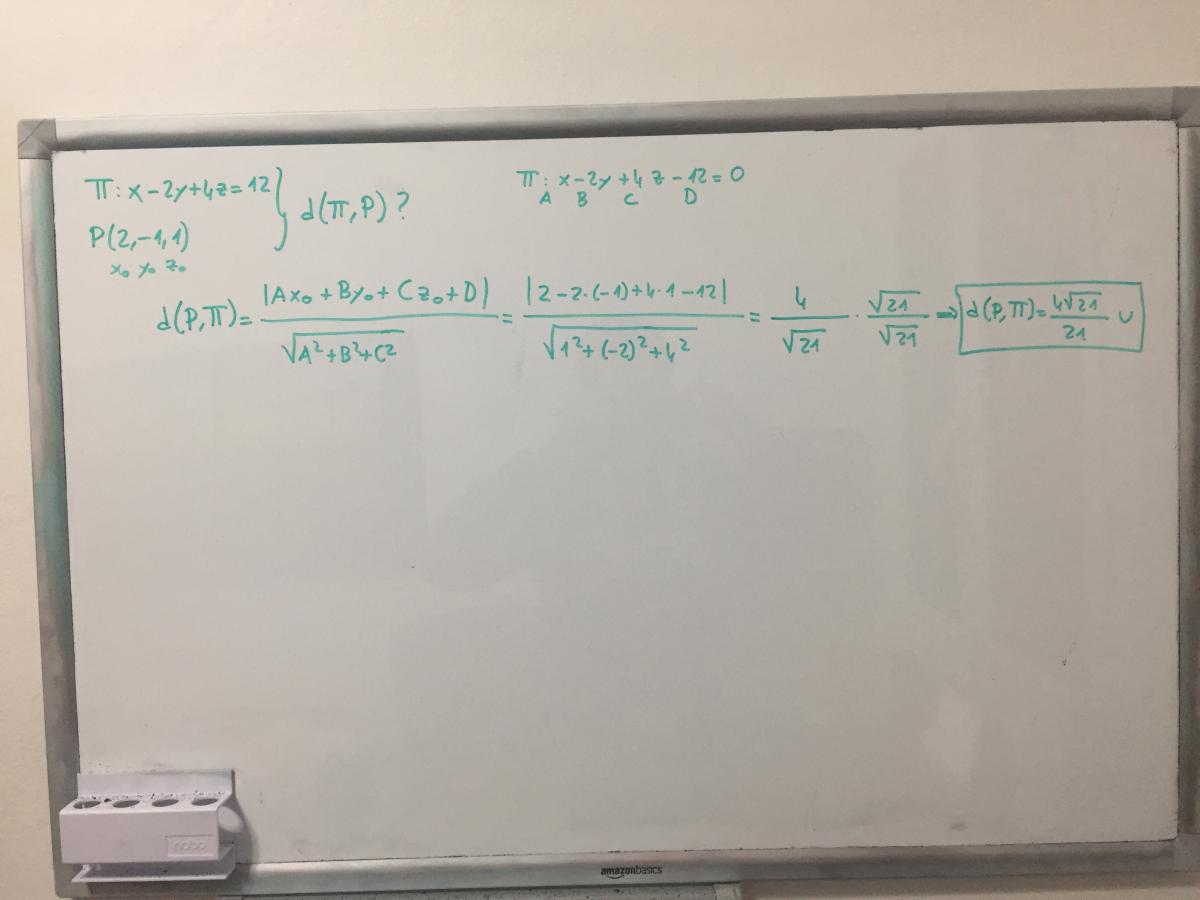 π: x-2y+4z=12 } d(π,P)?
P(2,-1,1)
x₀ y₀ z₀
π: x-2y+4z-12=0
A B C D
d(P,π)= |Ax₀+By₀+Cz₀+D| / √A²+B²+C² = |2-2·(-1)+4·1-12| / √1²+(-2)²+4² = 4/√21 · √21/√21 ⇒ d(P,π)= 4√21/21 u
nobo
amazonbasics